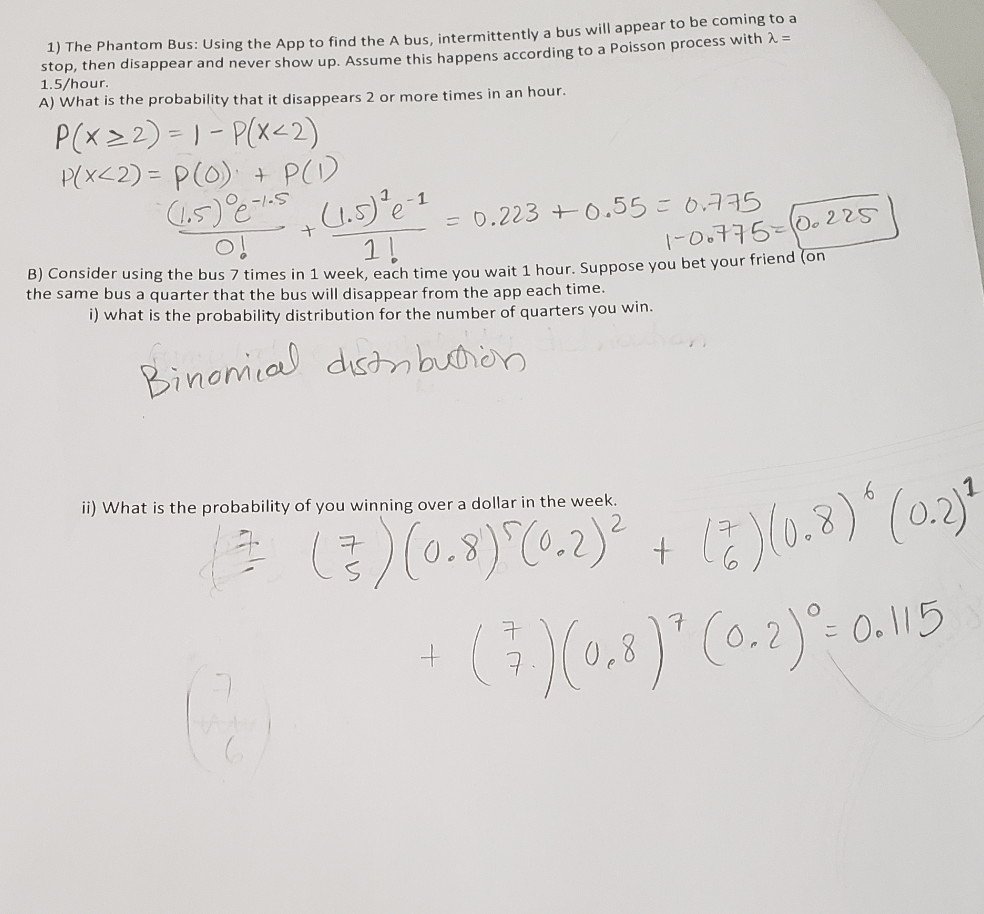 1) The Phantom Bus: Using the App to find the A bus, intermittently a bus will appear to be coming to a
stop, then disappear and never show up. Assume this happens according to a Poisson process with λ =
1.5/hour.
A) What is the probability that it disappears 2 or more times in an hour.
P(X ≥ 2) = 1 - P(X < 2)
P(X < 2) = P(0) + P(1)
(1.5)⁰e⁻¹·⁵/0! + (1.5)¹e⁻¹/1! = 0.223 + 0.55 = 0.775
1-0.775 = 0.225
B) Consider using the bus 7 times in 1 week, each time you wait 1 hour. Suppose you bet your friend (on
the same bus a quarter that the bus will disappear from the app each time.
i) what is the probability distribution for the number of quarters you win.
Binomial distribution
ii) What is the probability of you winning over a dollar in the week.
(7 5)(0.8)⁵(0.2)² + (7 6)(0.8)⁶(0.2)¹
+ (7 7)(0.8)⁷(0.2)⁰ = 0.115